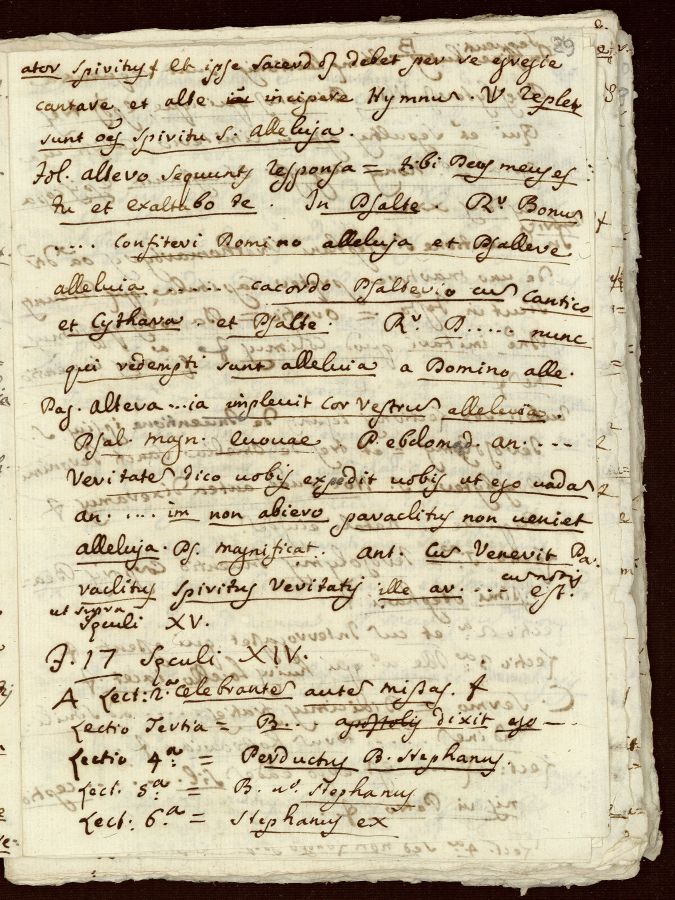 29
ator Spiritus f Et ipse sacerdos debet per se egregie
cantare et alte incipere Hymnus. ℣ repleti
sunt oēs Spiritu S. alleluja.
Fol. altero sequunts responsa = tibi Deus meus es
tu et exaltabo te. In Psalte. Rv Bonus
.... Confitevi Domino alleluja et Psallere
alleluia ....... cacordo Psalterio cus Cantico
et Cythara .. et Psalte. Rv. D..... nunc
qui redempti sunt alleluia a Domino alle.
Pag. altera ...ia implevit cor Vestrus alleluia.
Psal. magn. Euouae P. ebdomad. an. ....
Veritates dico uobis expedit uobis ut ego vadas
an. .... im non abiero paraclitus non ueniet
alleluja. Ps. magnificat. ant. Cus Venerit Pa.
raclitus Spiritus Veritatis ille ar.... est.
ut supra
Sęculi XV.
F. 17 Sęculi XIV.
A Lect. 2.a Celebrantes autes missas. f
Lectio Tertia = B... apostolis dixit ego —
Lectio 4.a = Perductus B. Stephanus.
Lect. 5.a = B. uo. Stephanus
Lect. 6.a = Stephanus ex